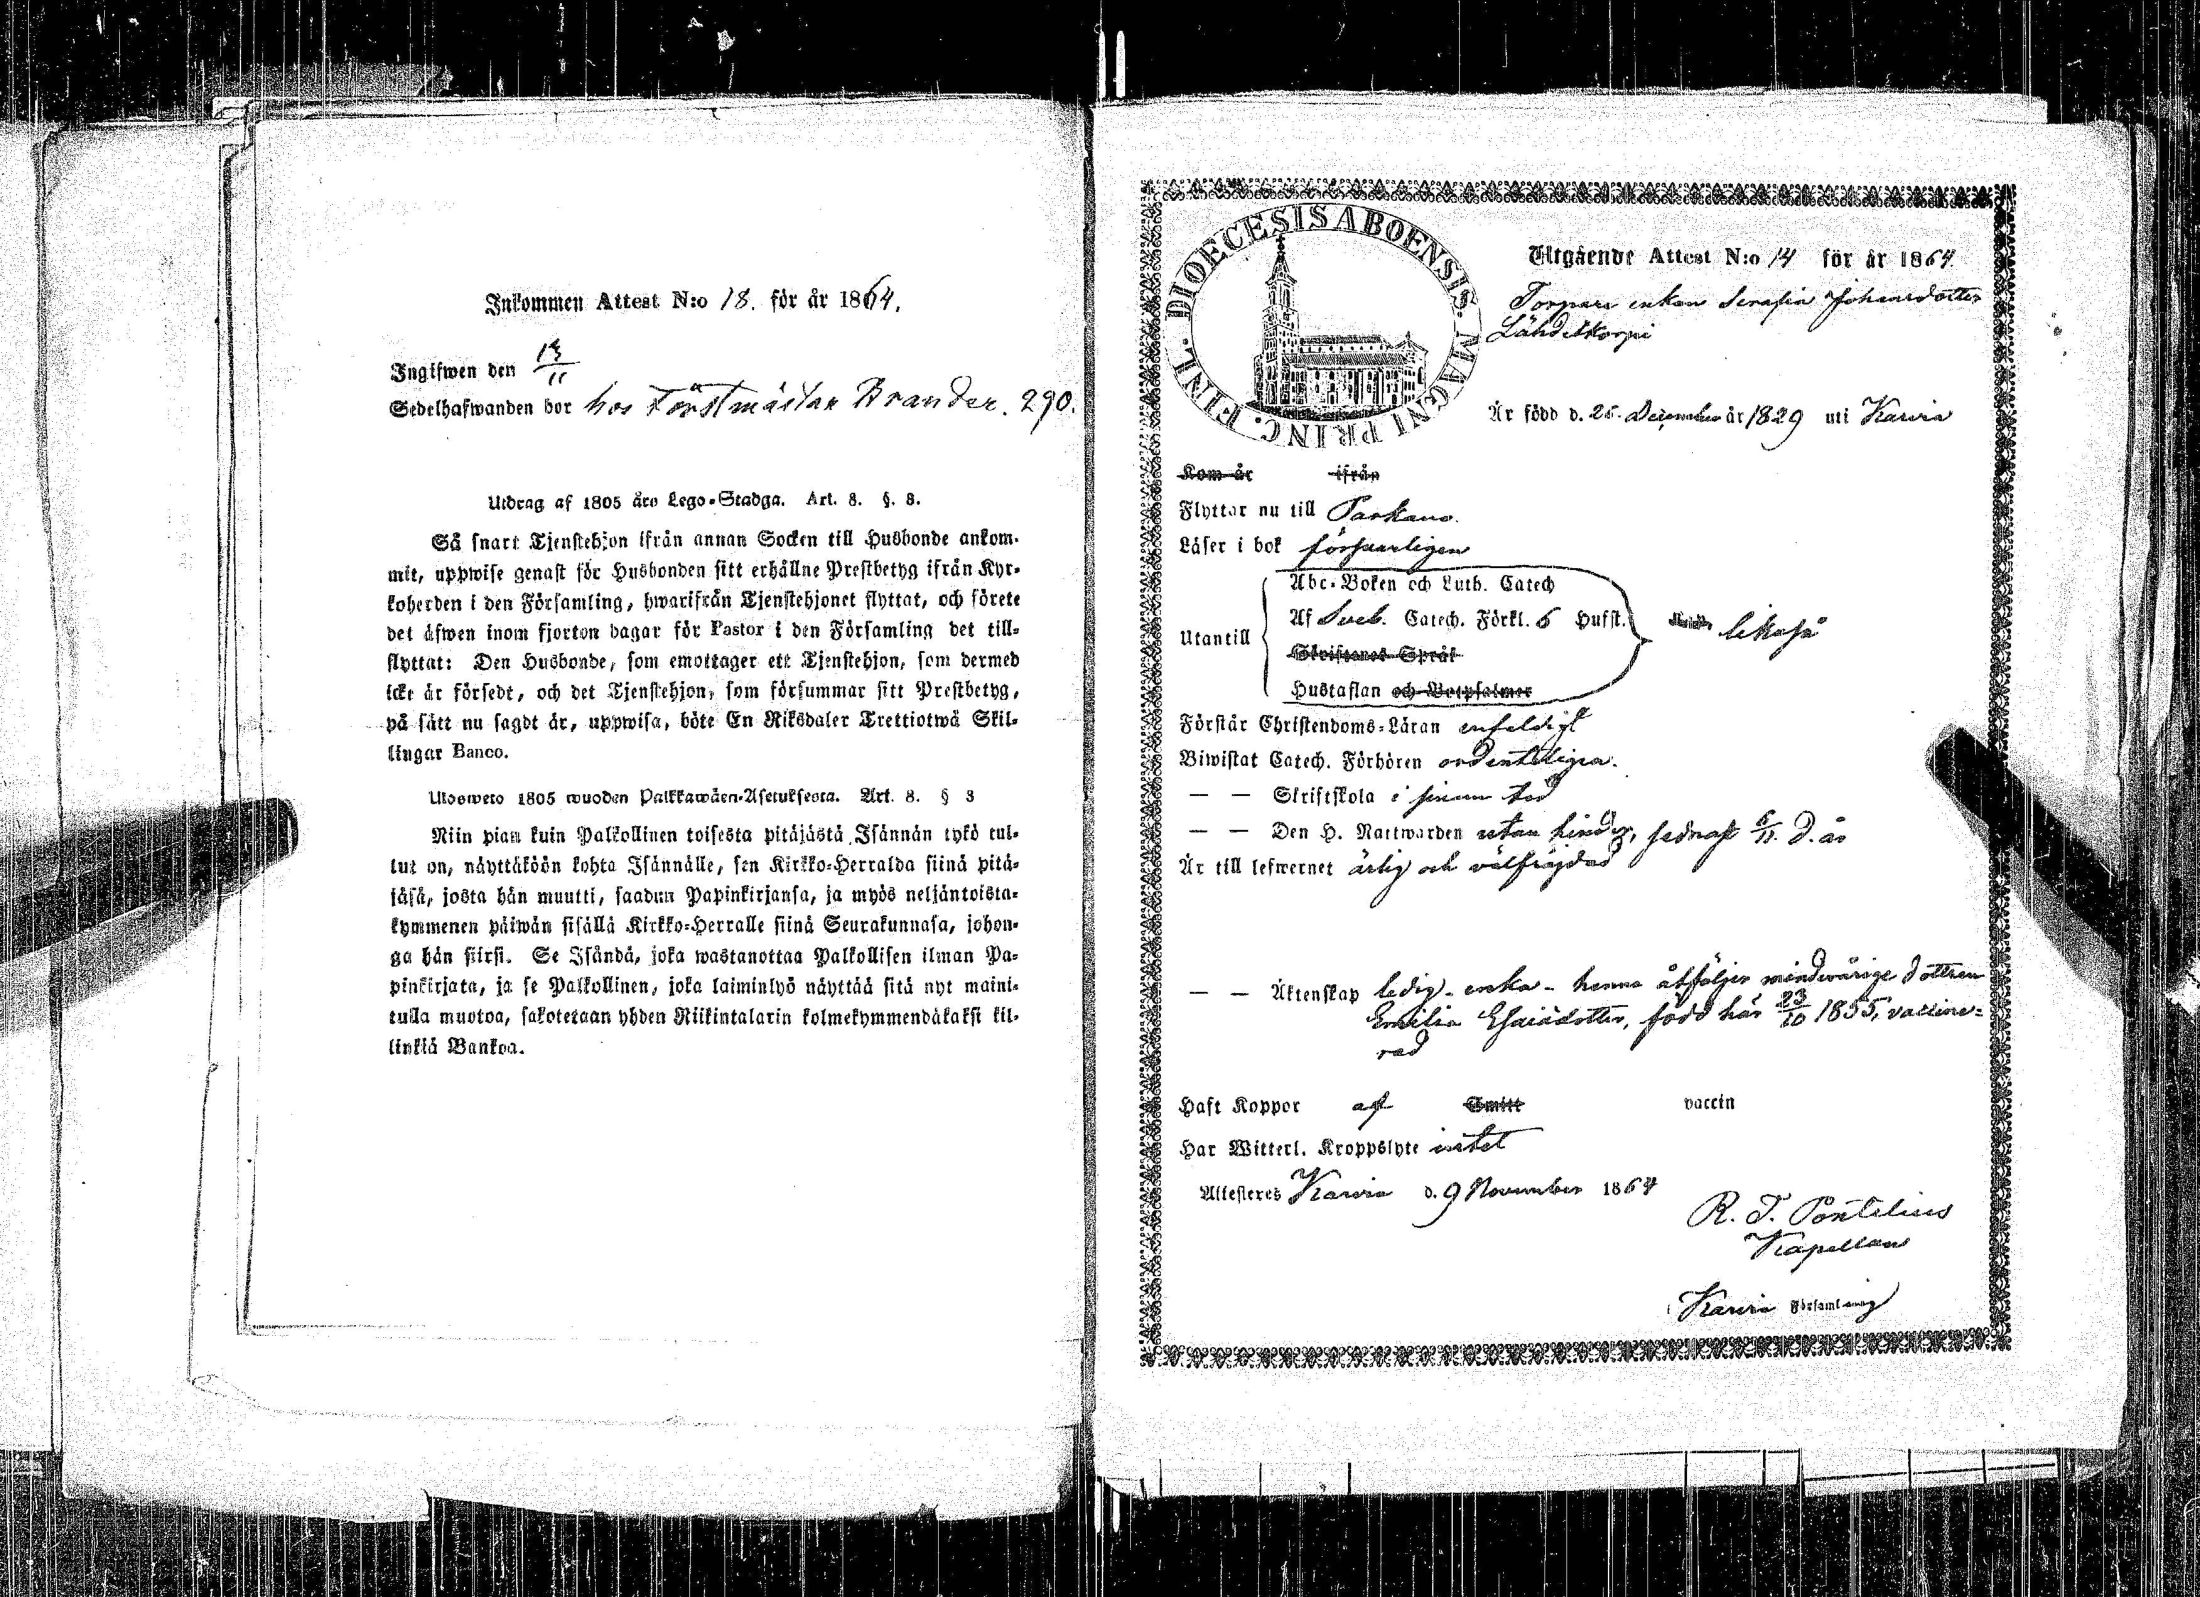 Inkommen Attest N:o 18. för år 1864.
Ingifwen den 13/11
Sedelhafwanden bor hos Forstmästar Brander. 290.
Utdrag af 1805 års Lego-Stadga. Art. 8. §. 8.
Så snart Tjenstehjon ifrån annan Socken till Husbonde ankom-
mit, uppwise genast för Husbonden sitt erhållne Prestbetyg ifrån Kyr-
koherden i den Församling, hwarifrån Tjenstehjonet flyttat, och förete
det äfwen inom fjorton dagar för Pastor i den Församling det till-
flyttat: Den Husbonde, som emottager ett Tjenstehjon, som dermed
icke är försedt, och det Tjenstehjon, som försummar sitt Prestbetyg,
på sätt nu sagdt är, uppwisa, böte En Riksdaler Trettiotwå Skil-
lingar Banco.
Ulosweto 1805 wuoden Palkkawäen-Asetuksesta. Art. 8. § 3
Niin pian kuin Palkollinen toisesta pitäjästä Isännän tykö tul-
lut on, näyttäköön kohta Isännälle, sen Kirkko-Herralda siinä pitä-
jäsä, josta hän muutti, saadun Papinkirjansa, ja myös neljäntoista-
kymmenen päiwän sisällä Kirkko-Herralle siinä Seurakunnasa, johon-
ga hän siirsi. Se Isändä, joka wastanottaa Palkollisen ilman Pa-
pinkirjata, ja se Palkollinen, joka laiminlyö näyttää sitä nyt maini-
tulla muotoa, sakotetaan yhden Riikintalarin kolmekymmendäkaksi kil-
linkiä Bankoa.
DIOECESIS ABOENSIS. MAGNI PRINC. FINL.
Utgående Attest N:o 14 för år 1864
Torpare enkan Serafia Johansdotter
Lähdekorpi
Är född d. 26. December år 1829 uti Karvia
Kom år ifrån
Flyttar nu till Parkano.
Läser i bok försvarligen
Abc-Boken och Luth. Catech
Af Sveb. Catech. Förkl. 6 Hufst.
Utantill likaså
Skriftenes Språk
Hustaflan och Botpsalmer
Förstår Christendoms-Läran enfaldigt
Biwistat Catech. Förhören ordentligen.
— — Skriftskola i sinom tid
— — Den H. Nattwarden utan hinder, sednast 6/11. d. år
Är till lefwernet ärlig och välfrejdad
— — Äktenskap ledig - enka - henne åtföljer minderårige dottren
Emilia Esaiädotter, född här 23/10 1855, vaccine-
rad
Haft Koppor af Smitt vaccin
Har Witterl. Kroppslyte intet
Attesteres Karvia d. 9 November 1864
R. T. Pontelius
Kapellan
i Karvia Församling